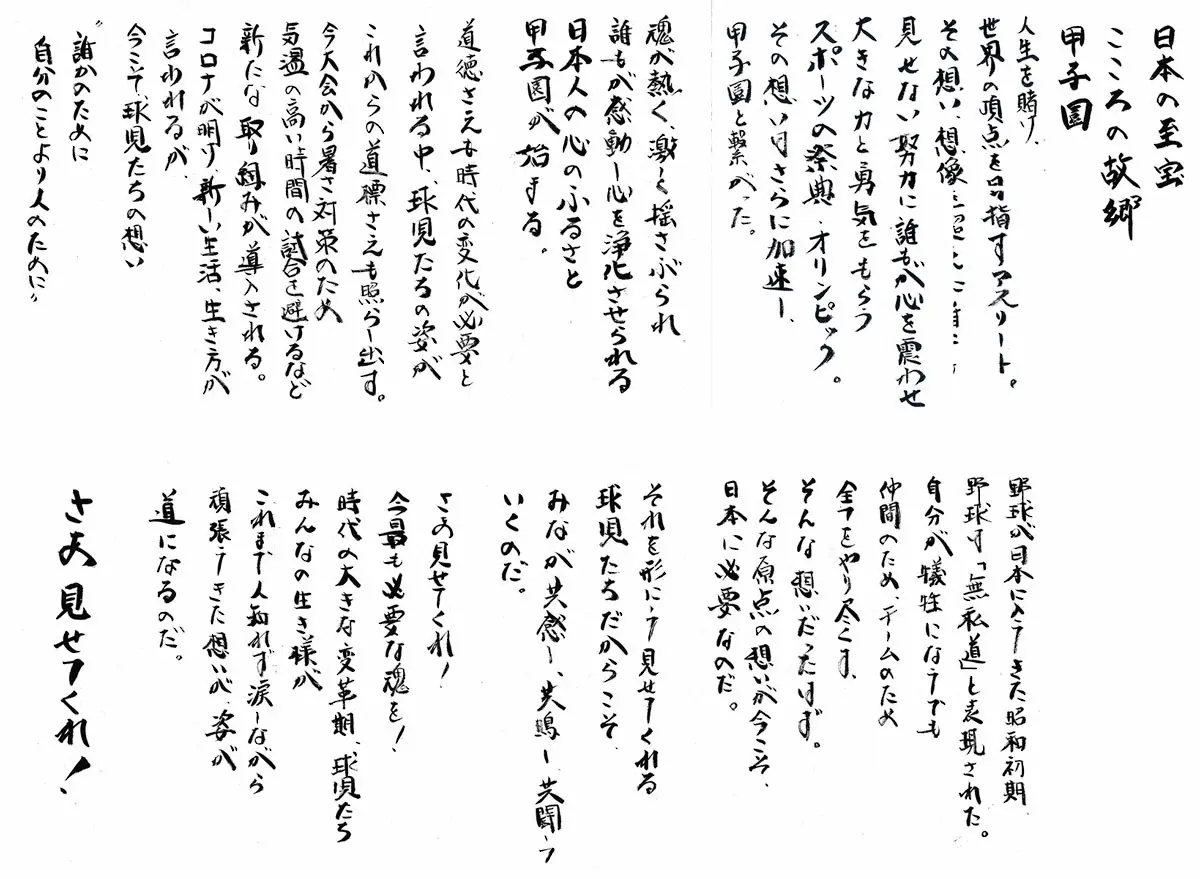 日本の至宝
こころの故郷
甲子園
人生を賭け、
世界の頂点を目指すアスリート。
その想い、想像を超えた
見せない努力に誰もが心を震わせ
大きな力と勇気をもらう
スポーツの祭典、オリンピック。
その想いはさらに加速し、
甲子園と繋がった。
魂が熱く、激しく揺さぶられ
誰もが感動し心を浄化させられる
日本人の心のふるさと
甲子園が始まる。
道徳さえも時代の変化が必要と
言われる中、球児たちの姿が
これからの道標さえも照らし出す。
今大会から暑さ対策のため
気温の高い時間の試合を避けるなど
新たな取り組みが導入される。
コロナが明け新しい生活、生き方が
言われるが、
今こそ、球児たちの想い
“誰かのために
自分のことより人のために”
野球が日本に入ってきた昭和初期
野球は「無私道」と表現された。
自分が犠牲になってでも
仲間のため、チームのため
全てをやり尽くす、
そんな想いだったはず。
そんな原点の想いが今こそ、
日本に必要なのだ。
それを形にして見せてくれる
球児たちだからこそ、
みなが共感し、共鳴し共闘して
いくのだ。
さあ見せてくれ！
今最も必要な魂を！
時代の大きな変革期、球児たち
みんなの生き様が
これまで人知れず涙しながら
頑張ってきた想いが、姿が
道になるのだ。
さあ見せてくれ！